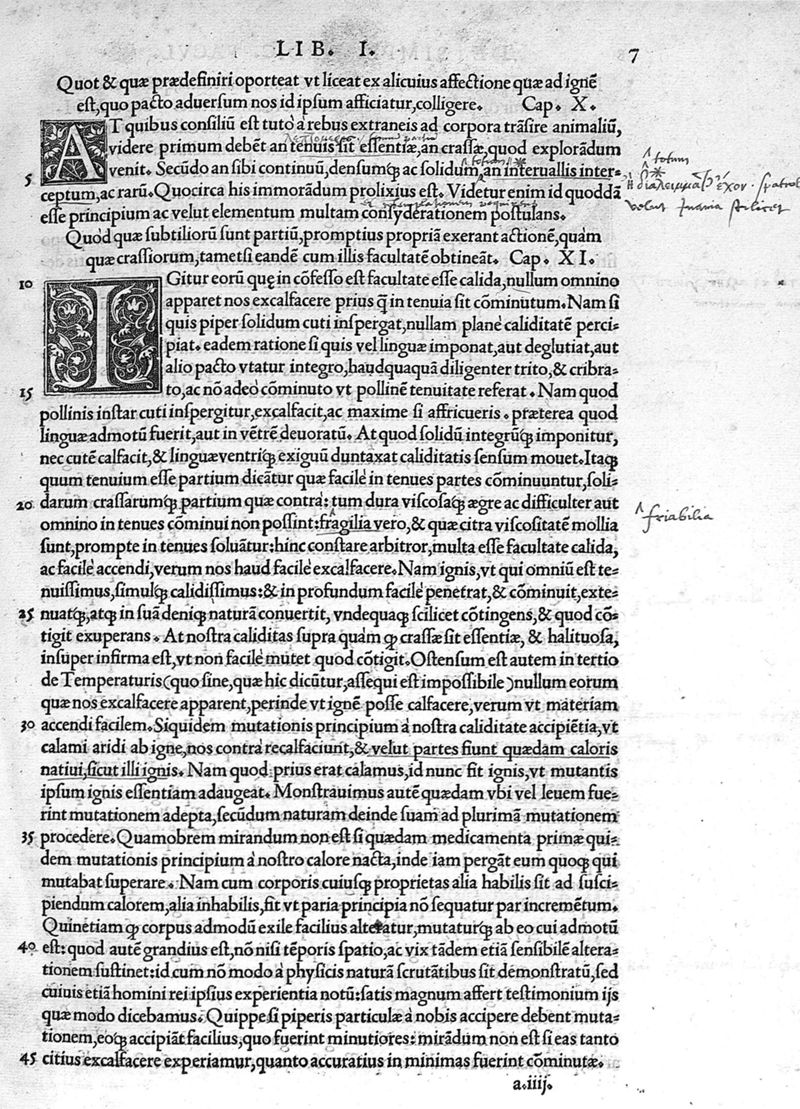 LIB. I. 7
Quot & quæ prædefiniri oporteat vt liceat ex alicuius affectione quæ ad ignē
est, quo pacto aduersum nos id ipsum afficiatur, colligere. Cap. X.
AT quibus consiliū est tuto à rebus extraneis ad corpora trāsire animaliū,
videre primum debēt an tenuis sit essentiæ, an crassæ, quod explorādum
venit. Secūdo an sibi continuū, densumq́; ac solidum, an interuallis inter-
totum
5
ceptum, ac rarū. Quocirca his immorādum prolixius est. Videtur enim id quoddā
esse principium ac velut elementum multam consyderationem postulans.
velut inania scilicet
Quòd quæ subtiliorū sunt partiū, promptius propriā exerant actionē, quàm
quæ crassiorum, tametsi eandē cum illis facultatē obtineāt. Cap. XI.
10 IGitur eorū quę in cōfesso est facultate esse calida, nullum omnino
apparet nos excalfacere prius q̄ in tenuia sit cōminutum. Nam si
quis piper solidum cuti inspergat, nullam planè caliditatē perci-
piat. eadem ratione si quis vel linguæ imponat, aut deglutiat, aut
alio pacto vtatur integro, haudquaquā diligenter trito, & cribra-
15 to, ac nō adeò cōminuto vt pollinē tenuitate referat. Nam quod
pollinis instar cuti inspergitur, excalfacit, ac maxime si affricueris. præterea quod
linguæ admotū fuerit, aut in vētrē deuoratū. At quod solidū integrūq́; imponitur,
nec cutē calfacit, & linguæ ventriq́; exiguū duntaxat caliditatis sensum mouet. Itaq;
quum tenuium esse partium dicātur quæ facilè in tenues partes cōminuuntur, soli-
20 darum crassarumq́; partium quæ contrà: tum dura viscosaq́; ægre ac difficulter aut
omnino in tenues cōminui non possint: fragilia vero, & quæ citra viscositatē mollia
friabilia
sunt, prompte in tenues soluātur: hinc constare arbitror, multa esse facultate calida,
ac facilè accendi, verum nos haud facilè excalfacere. Nam ignis, vt qui omniū est te-
nuissimus, simulq́; calidissimus: & in profundum facilè penetrat, & cōminuit, exte-
25 nuatq́;, atq; in suā deniq; naturā conuertit, vndequaq; scilicet cōtingens, & quod cō-
tigit exuperans. At nostra caliditas supra quàm q; crassæ sit essentiæ, & halituosa,
insuper infirma est, vt non facilè mutet quod cōtigit. Ostensum est autem in tertio
de Temperaturis (quo sine, quæ hic dicūtur, assequi est impossibile) nullum eorum
quæ nos excalfacere apparent, perinde vt ignē posse calfacere, verum vt materiam
30 accendi facilem. Siquidem mutationis principium à nostra caliditate accipiētia, vt
calami aridi ab igne, nos contrà recalfaciunt, & velut partes fiunt quædam caloris
natiui, sicut illi ignis. Nam quod prius erat calamus, id nunc fit ignis, vt mutantis
ipsum ignis essentiam adaugeat. Monstrauimus autē quædam vbi vel leuem fue-
rint mutationem adepta, secūdum naturam deinde suam ad plurimā mutationem
35 procedere. Quamobrem mirandum non est si quædam medicamenta primæ qui-
dem mutationis principium à nostro calore nacta, inde iam pergāt eum quoq; qui
mutabat superare. Nam cum corporis cuiusq; proprietas alia habilis sit ad susci-
piendum calorem, alia inhabilis, fit vt paria principia nō sequatur par incremētum.
Quinetiam q; corpus admodū exile facilius alteratur, mutaturq́; ab eo cui admotū
40 est: quod autē grandius est, nō nisi tēporis spatio, ac vix tādem etiā sensibilē altera-
tionem sustinet: id cum nō modo à physicis naturā scrutātibus sit demonstratū, sed
cuiuis etiā homini rei ipsius experientia notū: satis magnum affert testimonium ijs
quæ modo dicebamus. Quippe si piperis particulæ à nobis accipere debent muta-
tionem, eoq́; accipiāt facilius, quo fuerint minutiores: mirādum non est si eas tanto
45 citius excalfacere experiamur, quanto accuratius in minimas fuerint cōminutæ.
a.iiij.